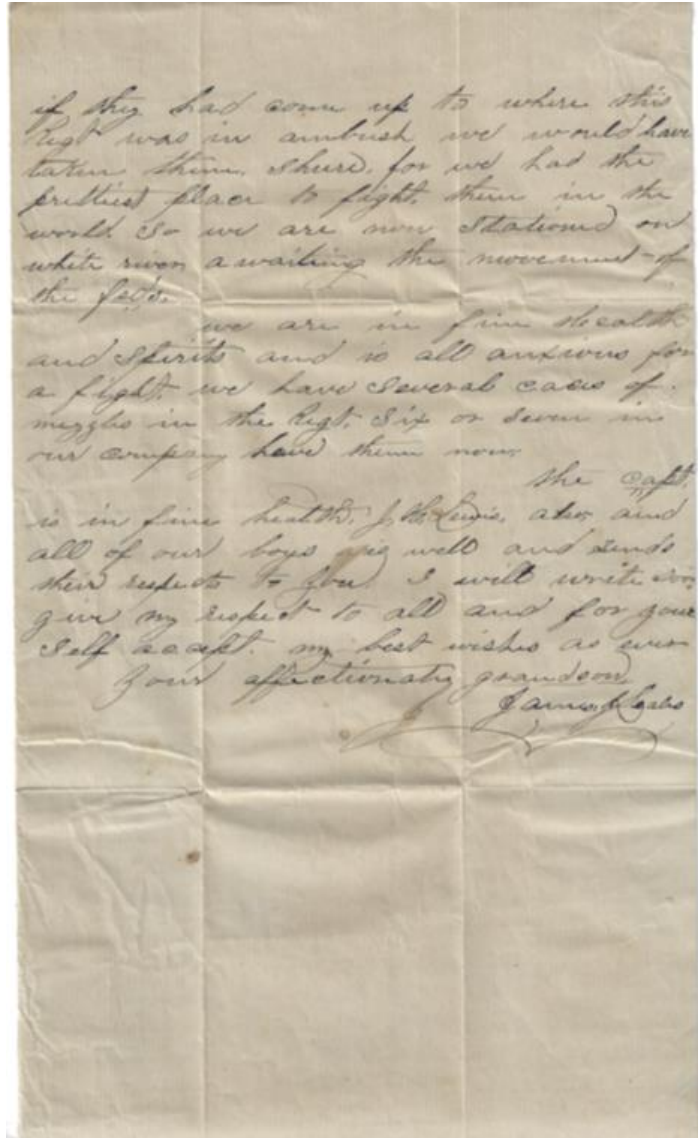 if they had come up to where this
Regt was in ambush we would have
taken them shure, for we had the
prettiest place to fight them in the
world. So we are now stationed on
white river awaiting the movement of
the fed's.
we are in fine health
and spirits and is all anxious for
a fight. we have several cases of
mezzles in the Regt. Six or seven in
our company have them now.
the capt.
is in fine health. J. H. Lewis. also and
all of our boys is well and sends
their respects to you I will write soon
give my respect to all and for your
Self accept. my best wishes as ever
Your affectionate grandson
James